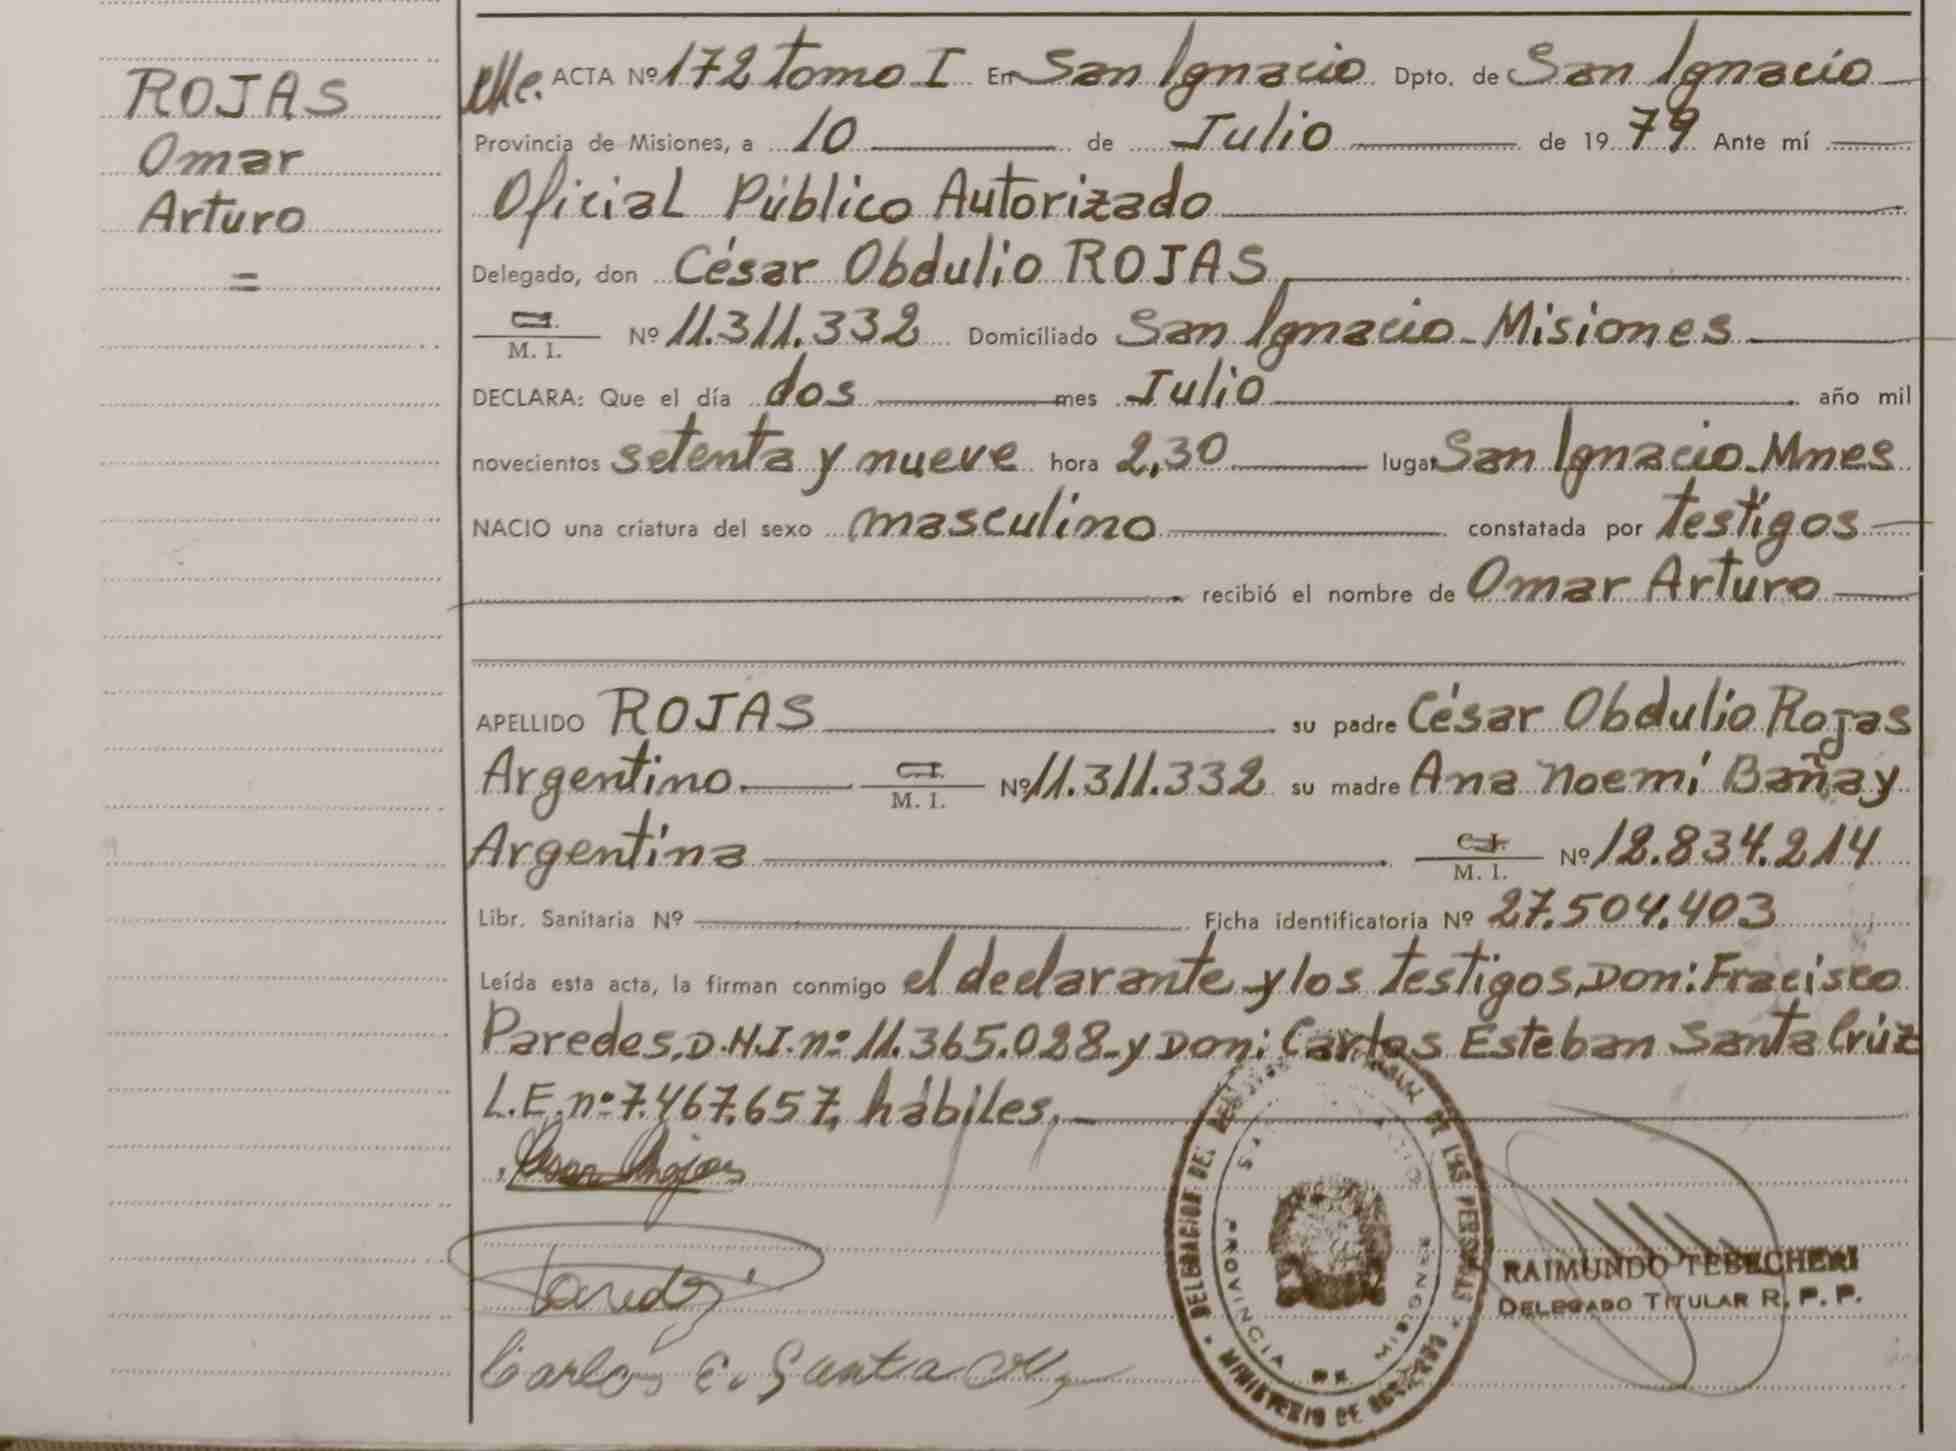 ROJAS
Omar
Arturo
=
ACTA Nº 172 tomo I En San Ignacio Dpto. de San Ignacio
Provincia de Misiones, a 10 de Julio de 1979 Ante mí
Oficial Público Autorizado
Delegado, don César Obdulio ROJAS
C.I.
M. I. Nº 11.311.332 Domiciliado San Ignacio - Misiones
DECLARA: Que el día dos mes Julio año mil
novecientos setenta y nueve hora 2,30 lugar San Ignacio - Mnes
NACIO una criatura del sexo masculino constatada por testigos
recibió el nombre de Omar Arturo
APELLIDO ROJAS su padre César Obdulio Rojas
Argentino. C.I.
M. I. Nº 11.311.332 su madre Ana Noemí Bañay
Argentina C.I.
M. I. Nº 12.834.214
Libr. Sanitaria Nº Ficha identificatoria Nº 27.504.403
Leída esta acta, la firman conmigo el declarante y los testigos, Don: Fracisco
Paredes, D.N.I. nº 11.365.028 - y Don: Carlos Esteban Santa Crúz
L.E. nº 7.467.657, hábiles.
Rojas
Paredes
Carlos E. Santa Cruz
DELEGACION DEL REGISTRO DE LAS PERSONAS
MINISTERIO DE GOBIERNO
PROVINCIA DE MISIONES
RAIMUNDO TEBECHERI
DELEGADO TITULAR R. P. P.